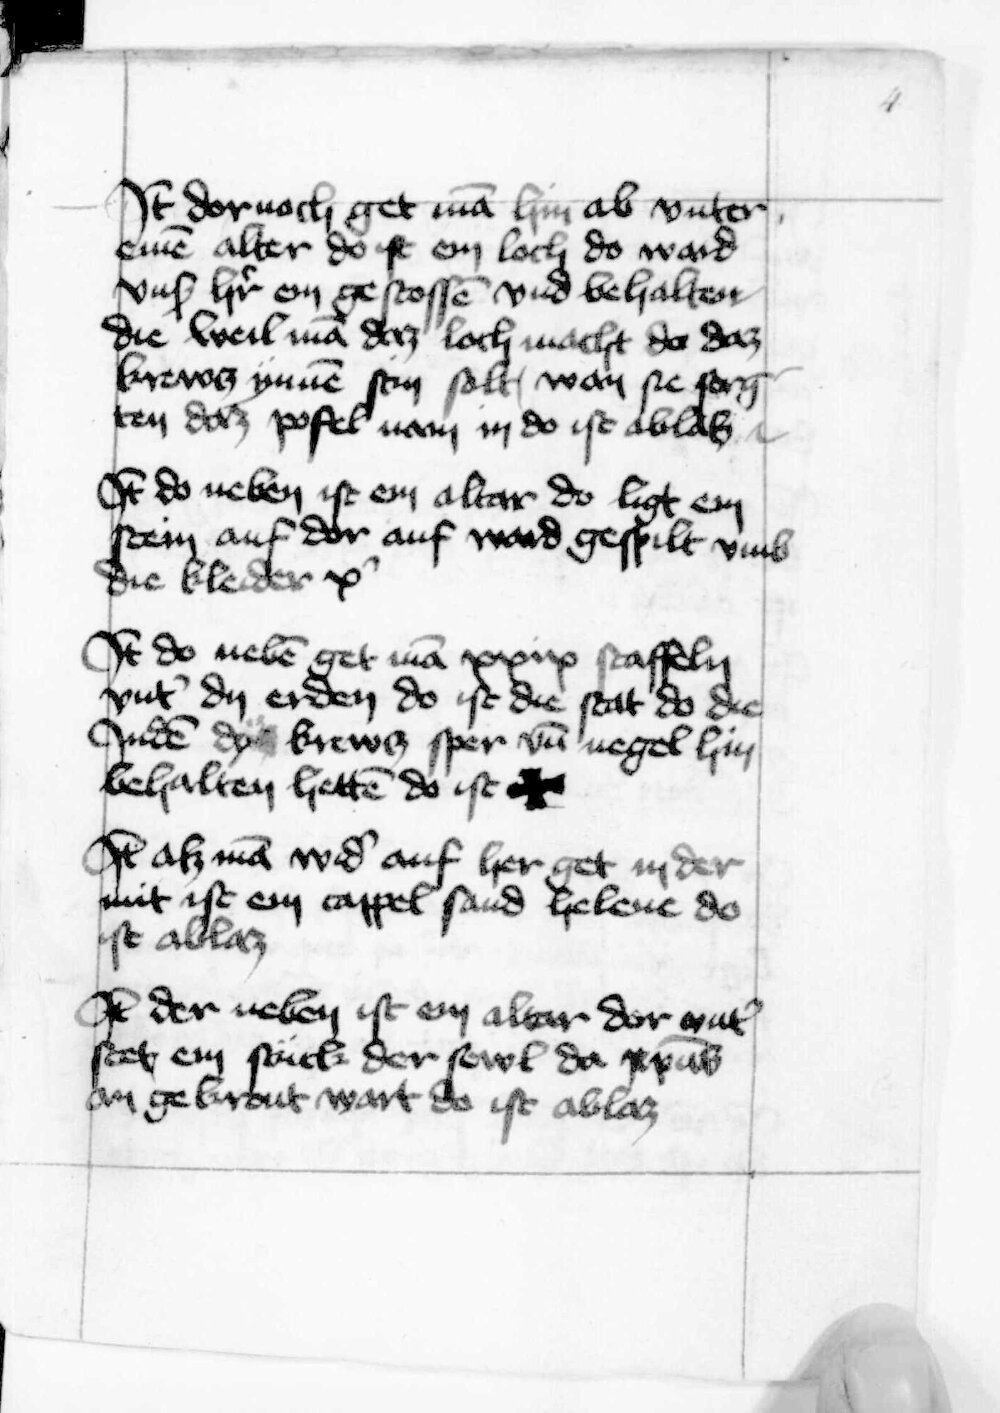 4
It dornoch get mā hin ab vnter
einē alter do ist ein loch do ward
vnsʼ hʼr ein gestossē vnd behalten
die weil mā daz loch macht da daz
krewtz ynnē stin solt wan sie sorg
ten daz pofel nam in do ist ablas
It do neben ist ein altar do ligt ein
stein auf dor auf ward gespilt vmb
die kleider xʼ
It do nebē get mā xxix staffeln
vntʼ dy erden do ist die stat do die
Judē krewtz sper vn̄ negel hin
behalten hettē do ist ✠
It alz mā widʼ auf her get in der
mit ist ein cappel sand helene do
ist ablaz
It der neben ist ein altar dor vntʼ
stet ein stück der sewl da xp̄us
an gekront wart do ist ablaz